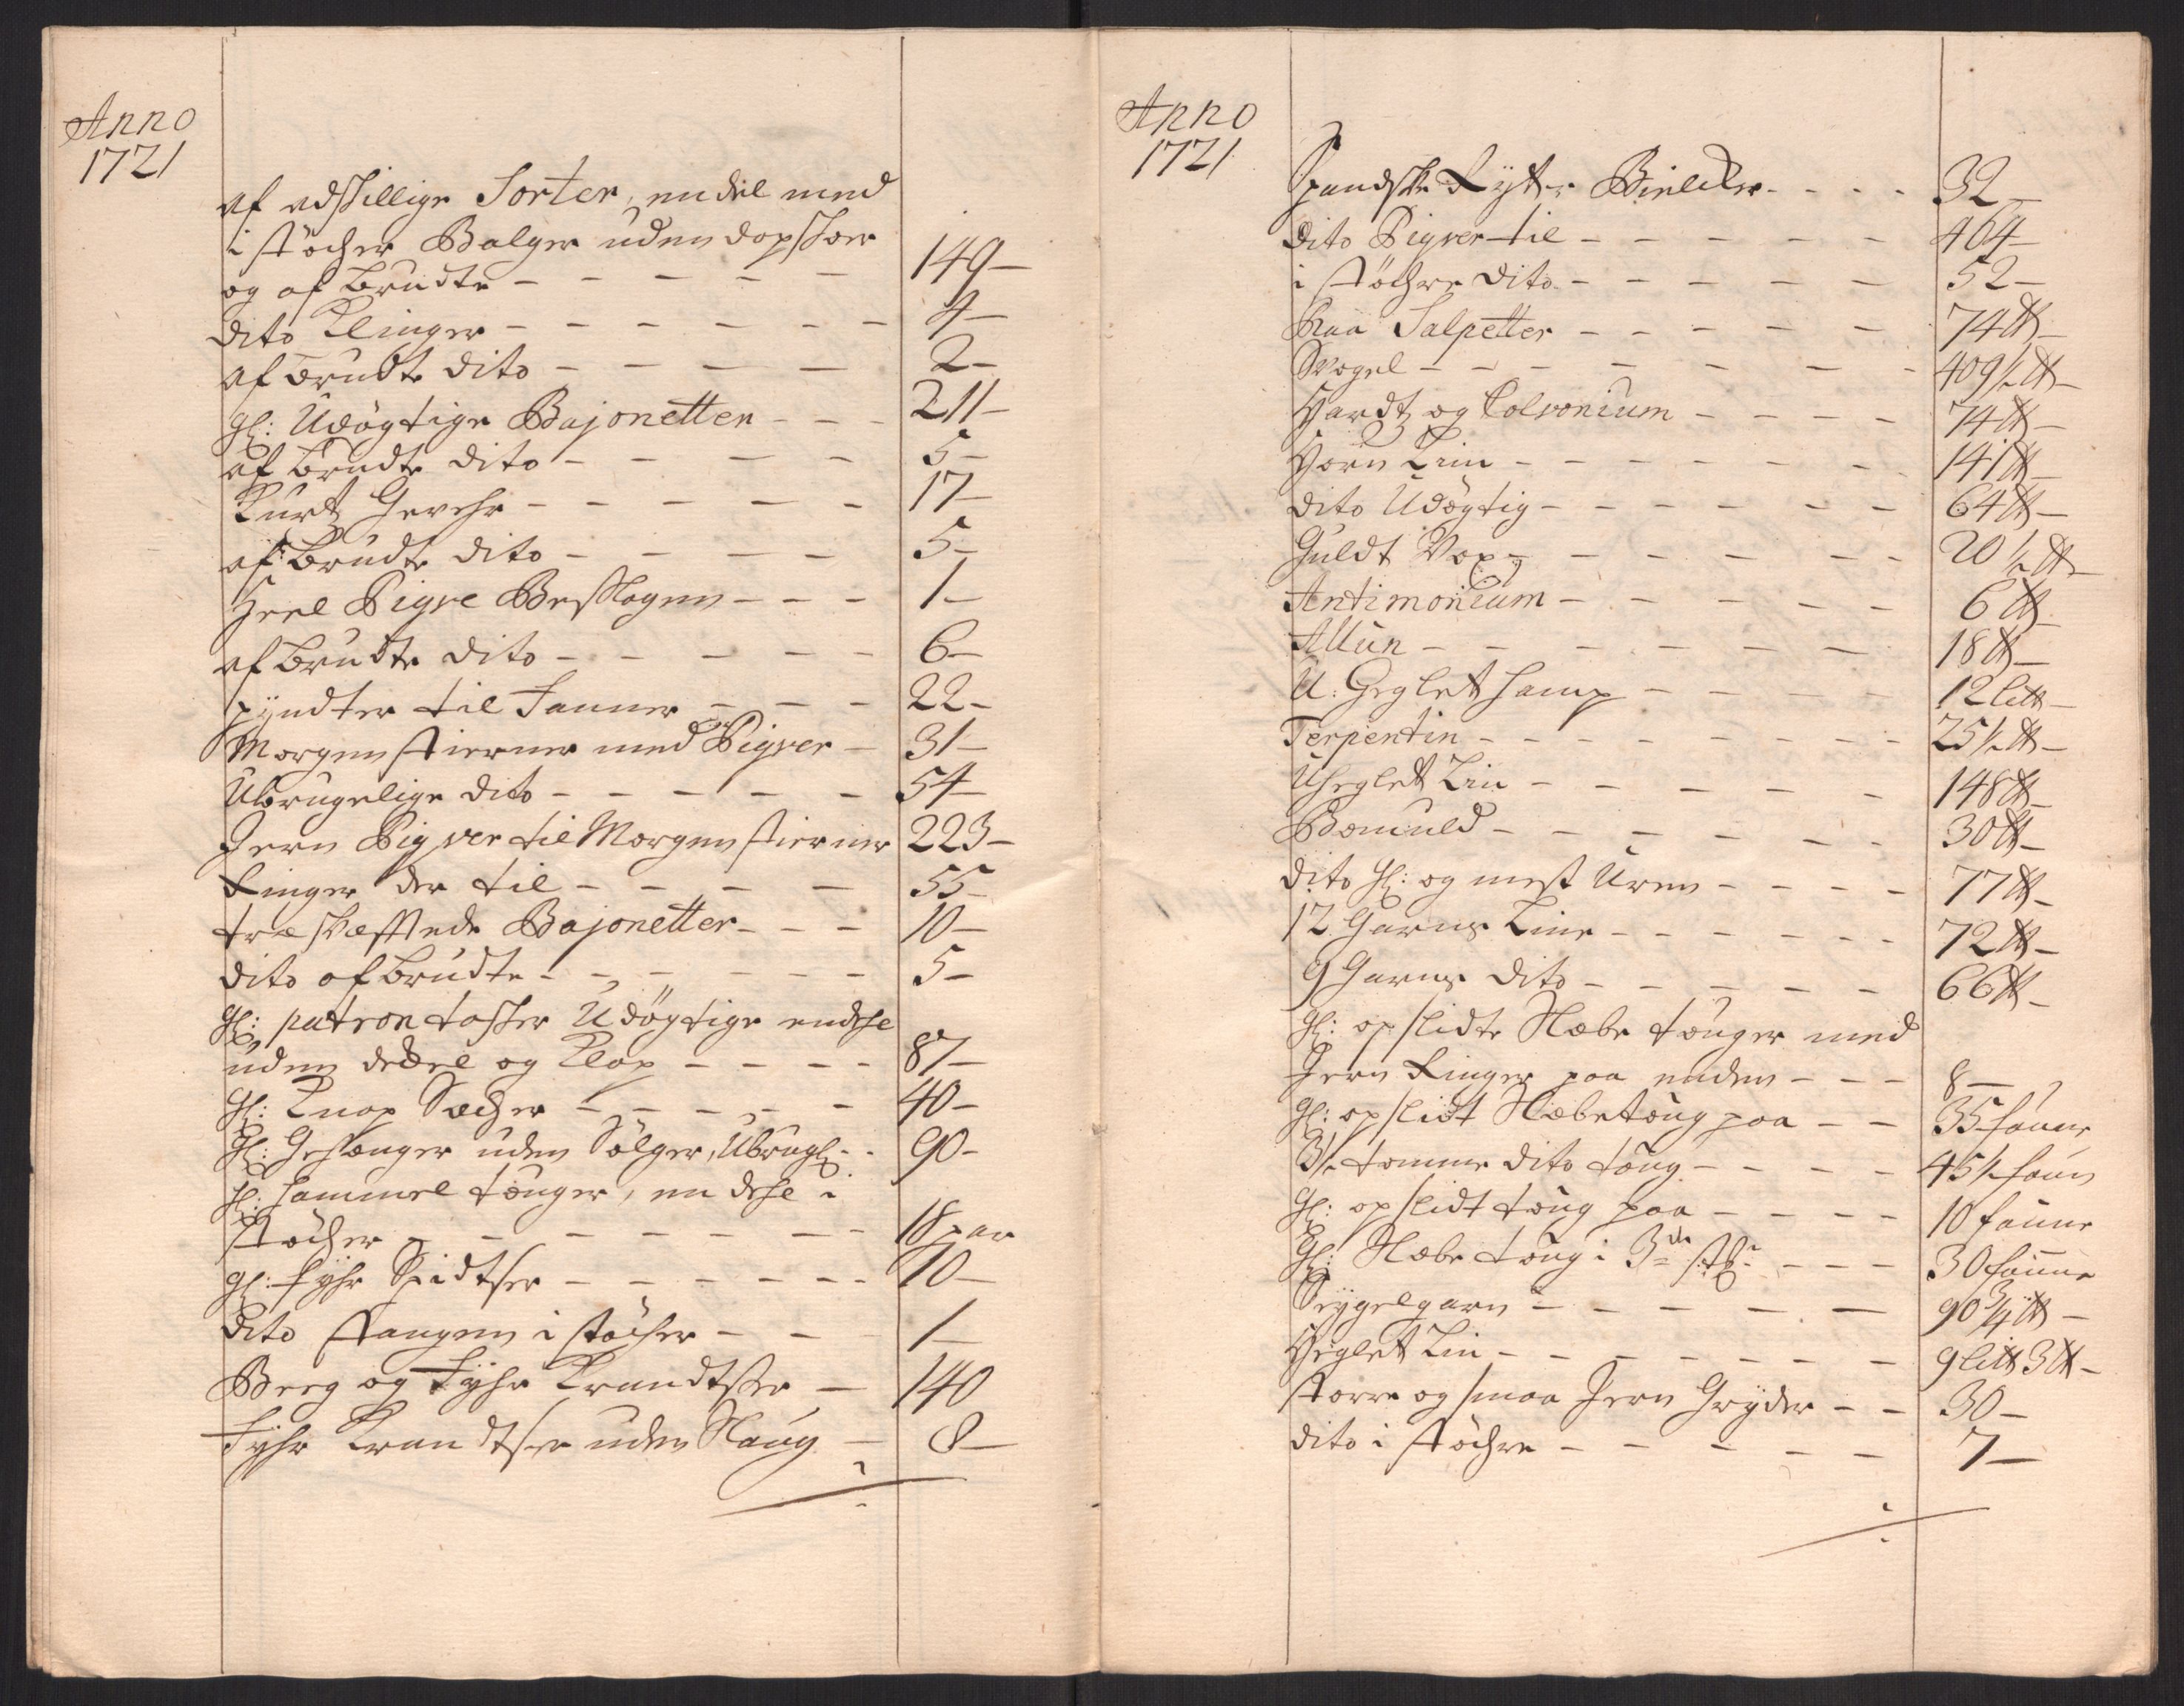 Anno
1721
af adskillige Sorter, endeel med
i støcher Balger uden dopskoer
og af brudte - - - - - 149 -
dito Klinger - - - - - - - 4 -
af brudte dito - - - - - 2 -
gl: Udögtige Bajonetter - - - 211 -
af brudte dito - - - - - 5 -
Kurtz Gevehr - - - - - - 17 -
af brudte dito - - - - - 5 -
Heel Pigve Beslagen - - - 1 -
af brudte dito - - - - - 6 -
pyndter til Fanner - - - 22 -
Morgenstierner med Pigver - 31 -
Ubrugelige dito - - - - - 54
Jern Pigver til Morgenstierner 223 -
Ringer der til - - - - 55 -
træskæfftede Bajonetter - - - 10 -
dito afbrudte - - - - - - 5 -
gl: patron tasker Udögtige endehl
uden dechel og Klap - - - - 87 -
gl: Knap Sæcher - - - - - 40 -
gl: Gehænger uden Sölger, Ubrugl: - - 90 -
gl: hammel tønger, en dehl i
støcher - - - - - - - 18 par
gl: fyhr Spidtser - - - - - - 10 -
dito stangen i støcher - - - 1 -
Beeg og Fyhr Krandtser - 140
Fyhr Krandtser uden Haug - 8 -
Anno
1721
Spandske Rytter Bielcker - - - - 32 -
dito Pigver til - - - - - - 464 -
i støchre dito - - - - - - 52 -
Raa Salpetter - - - - - 74 ℔ -
Svogel - - - - - - - 409½ ℔ -
Hardtz og Colvonium - - - - 74 ℔ -
Horn Lim - - - - - - - 141 ℔ -
dito Udögtig - - - - - - 64 ℔ -
Guldt Vox - - - - - - - 20½ ℔ -
Antimonium - - - - - - 6 ℔
Allun - - - - - - - 18 ℔ -
U: Heglet hamp - - - - - 12 li℔ -
Terpentin - - - - - - - - 25½ ℔ -
Uheglet Lin - - - - - - 148 ℔ -
Bomuld - - - - - - - 30 ℔ -
dito gl: og mest Uren - - - - 77 ℔ -
12 Garns Line - - - - - - 72 ℔ -
9 Garns dito - - - - - - 66 ℔ -
gl: opslidte Slæbe tonger med
Jern Ringer paa enden - - - 8 -
gl: opslidt Slæbetoug paa - - 35 faune
3½ tomme dito toug - - - - 45½ faun
gl: opslidt toug paa - - - - 10 faune
gl: Slæbe toug i 3de st: - - - 30 faune
Seygelgarn - - - - - - 90¾ ℔ -
Heglet Lin - - - - - - - 9 li℔ 3 ℔ -
storre og smaa Jern Gryder - - 30 -
dito i støchre - - - - - 7 -